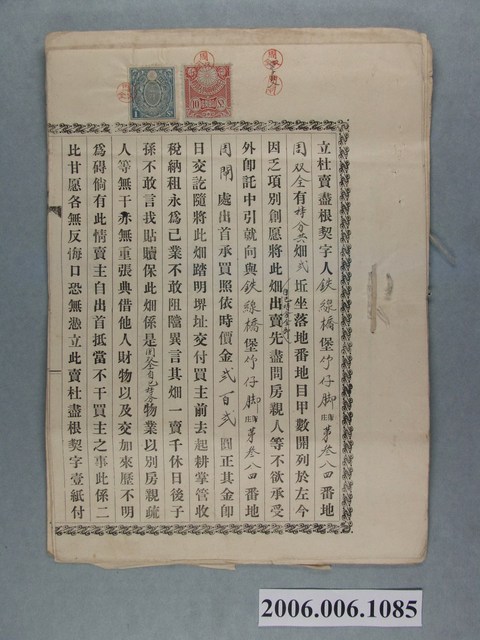 立杜賣盡根契字人鉄線橋堡竹仔脚庄第叁八四番地
周双全有時分共畑弍坵坐落地番地目甲數開列於左今
因乏項別創愿將此畑出賣先盡問房親人等不欲承受
外卽託中引就向與鉄線橋堡竹仔脚庄第叁八四番地
周閙處出首承買照依時價金弍百弍圓正其金卽
日交訖隨將此畑踏明堺址交付買主前去起耕掌管收
稅納租永爲己業不敢阻隂異言其畑一賣千休日後子
孫不敢言找貼贖保此畑係是周全自己物業以別房親疏
人等無干亦無重張典借他人財物以及交加來歷不明
爲碍倘有此情賣主自出首抵當不干買主之事此係二
比甘愿各無反悔口恐無憑立此賣杜盡根契字壹紙付
10
1
2006.006.1085